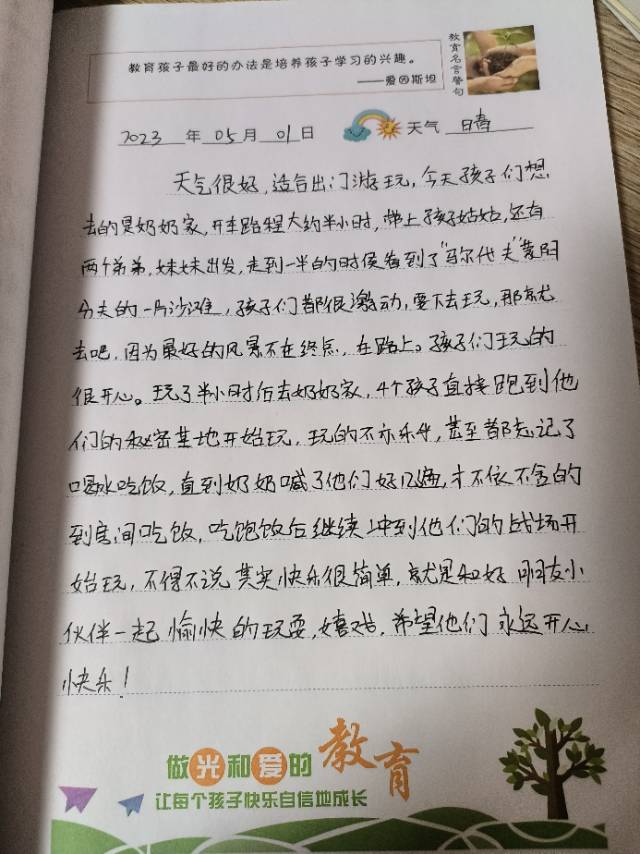 教育孩子最好的办法是培养孩子学习的兴趣。
——爱因斯坦
教育名言警句
2023 年 05 月 01 日 天气 晴
天气很好,适合出门游玩,今天孩子们想
去的是奶奶家,开车路程大约半小时,带上孩子姑姑,还有
两个弟弟,妹妹出发,走到一半的时候看到了"马尔代夫"
分夫的一片沙滩,孩子们都很激动,要下去玩,那就
去吧,因为最好的风景不在终点,在路上。孩子们玩的
很开心。玩了半小时后去奶奶家,4个孩子直接跑到他
们的秘密基地开始玩,玩的不亦乐乎,甚至都忘记了
喝水吃饭,直到奶奶喊了他们好几遍,才不依不舍的
到房间吃饭,吃饱饭后继续冲到他们的战场开
始玩,不得不说其实快乐很简单,就是和好朋友小
伙伴一起愉快的玩耍,嬉戏,希望他们永远开心
快乐!
做光和爱的教育
让每个孩子快乐自信地成长